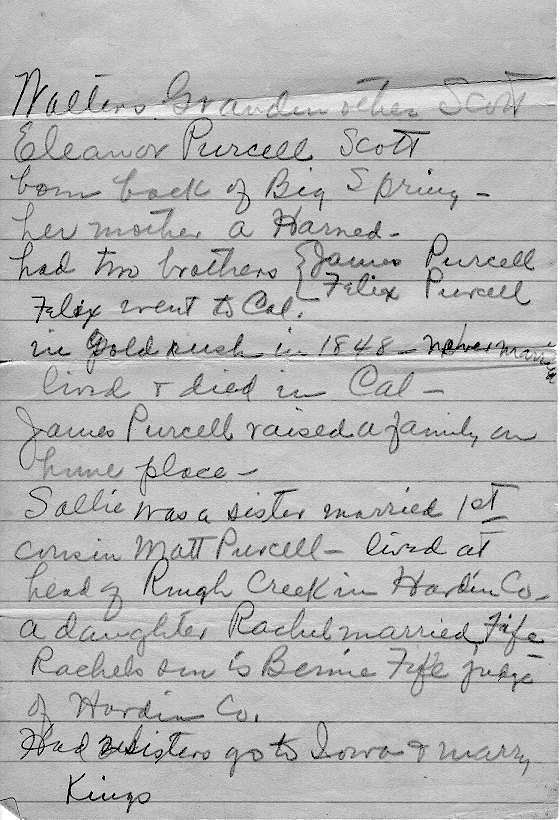 Walters Grandmother Scott
Eleanor Purcell Scott
born back of Big Spring -
her mother a Harned -
had two brothers { James Purcell
Felix Purcell
Felix went to Cal.
in Gold rush in 1848 - never married
lived & died in Cal -
James Purcell raised a family on
home place -
Sallie was a sister married 1st
cousin Matt Purcell - lived at
head of Rough Creek in Hardin Co -
a daughter Rachel married Fife
Rachels son is Bernie Fife judge
of Hardin Co.
Had 2 sisters go to Iowa & marry
Kings